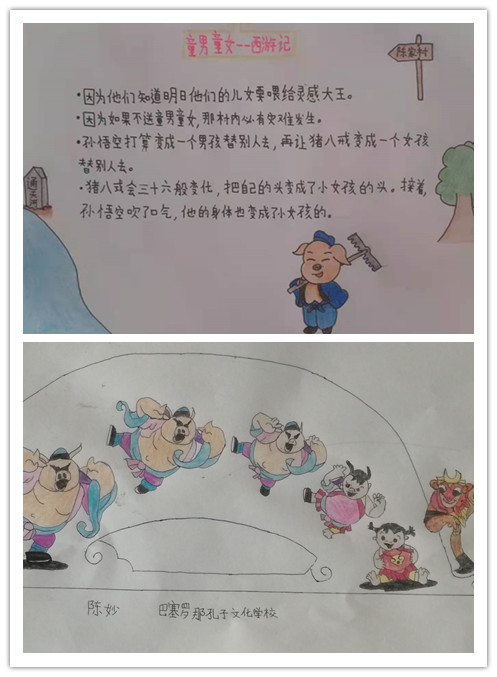 童男童女--西游记
陈家村
·因为他们知道明日他们的儿女要喂给灵感大王。
·因为如果不送童男童女,那村内必有灾难发生。
·孙悟空打算变成一个男孩替别人去,再让猪八戒变成一个女孩
替别人去。
·猪八戒会三十六般变化,把自己的头变成了小女孩的头。接着,
孙悟空吹了口气,他的身体也变成了小女孩的。
通天河
陈妙 巴塞罗那孔子文化学校